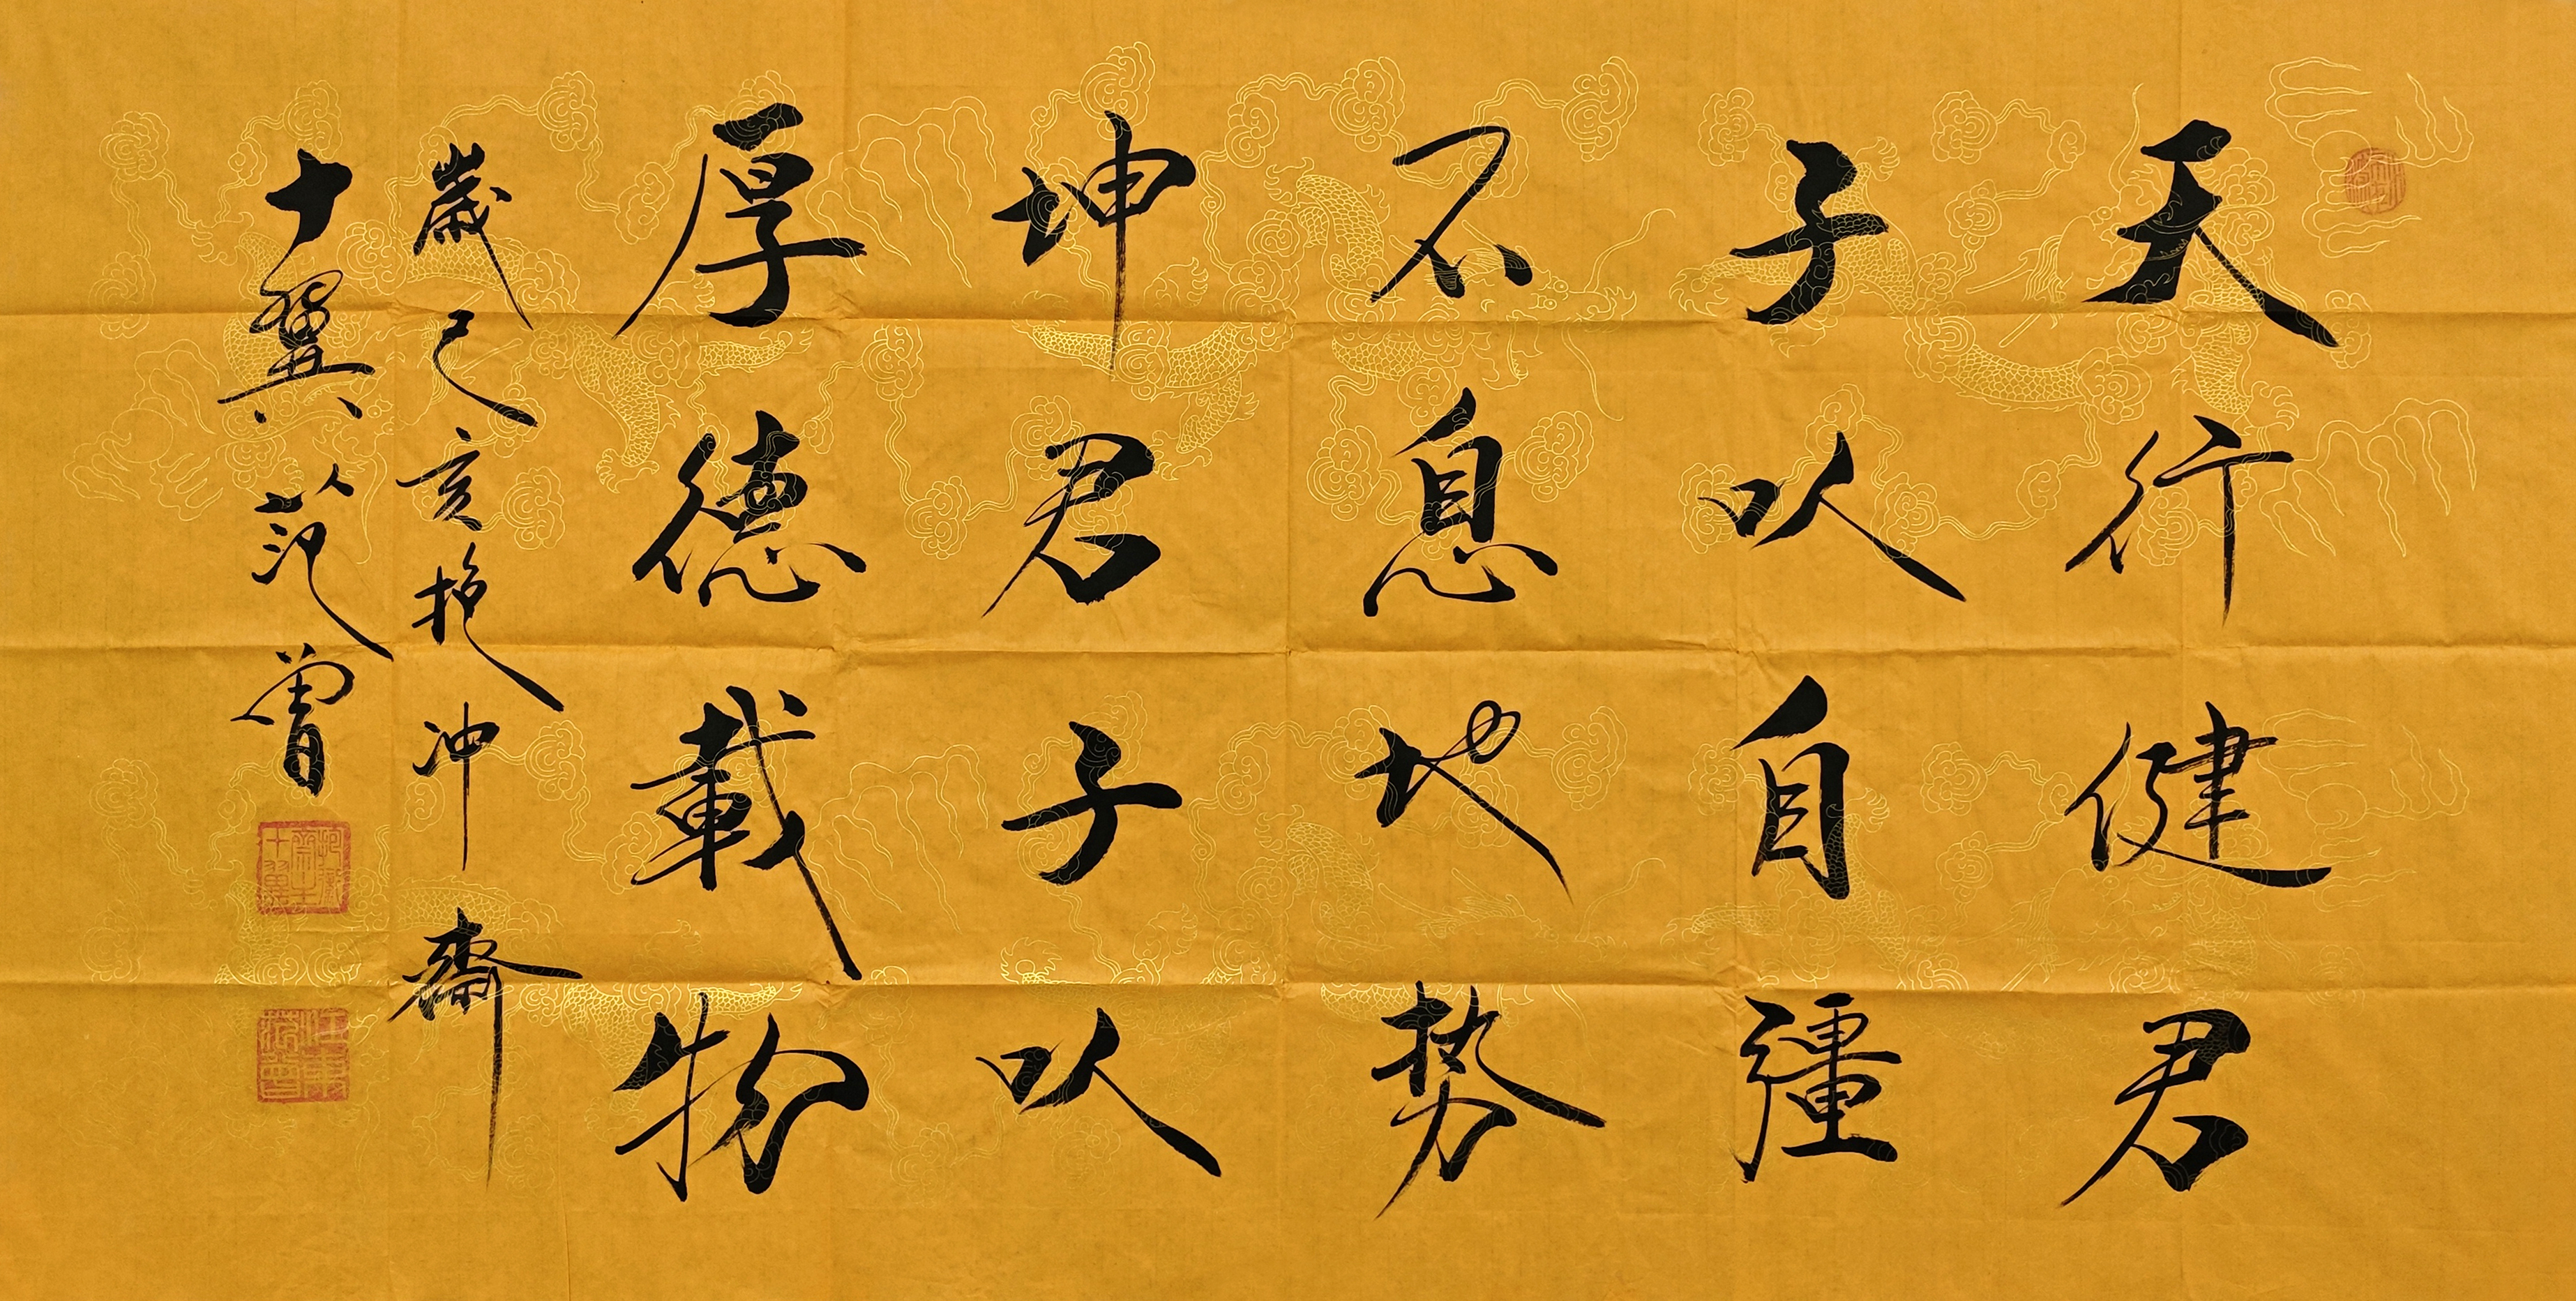 天行健君
子以自彊
不息地势
坤君子以
厚德載物
歲己亥抱沖齋
十翼范曾